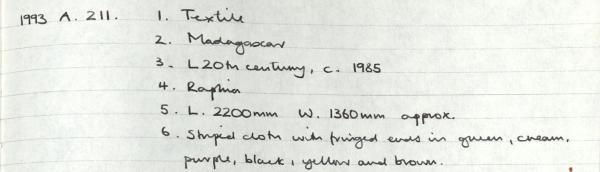 1993 A. 211. 1. Textile
2. Madagascar
3. L20th century, c. 1985
4. Raphia
5. L. 2200mm W. 1360mm approx.
6. Striped cloth with fringed ends in green, cream,
purple, black, yellow and brown.